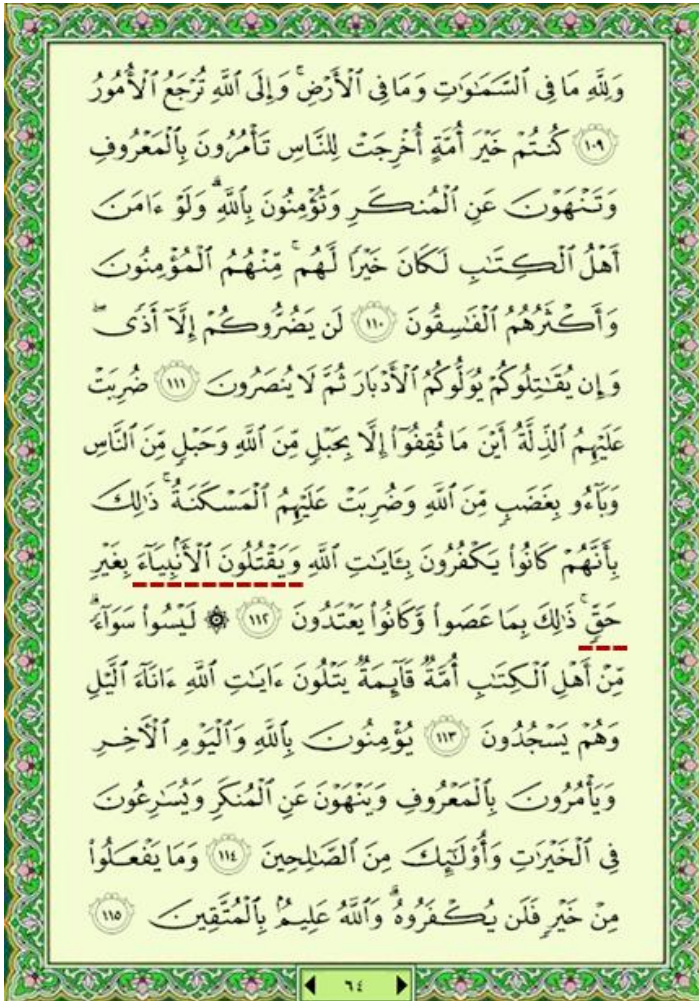 وَلِلَّهِ مَا فِى ٱلسَّمَٰوَٰتِ وَمَا فِى ٱلْأَرْضِ ۚ وَإِلَى ٱللَّهِ تُرْجَعُ ٱلْأُمُورُ
١٠٩ كُنتُمْ خَيْرَ أُمَّةٍ أُخْرِجَتْ لِلنَّاسِ تَأْمُرُونَ بِٱلْمَعْرُوفِ
وَتَنْهَوْنَ عَنِ ٱلْمُنكَرِ وَتُؤْمِنُونَ بِٱللَّهِ ۗ وَلَوْ ءَامَنَ
أَهْلُ ٱلْكِتَٰبِ لَكَانَ خَيْرًا لَّهُم ۚ مِّنْهُمُ ٱلْمُؤْمِنُونَ
وَأَكْثَرُهُمُ ٱلْفَٰسِقُونَ ١١٠ لَن يَضُرُّوكُمْ إِلَّآ أَذًى ۖ
وَإِن يُقَٰتِلُوكُمْ يُوَلُّوكُمُ ٱلْأَدْبَارَ ثُمَّ لَا يُنصَرُونَ ١١١ ضُرِبَتْ
عَلَيْهِمُ ٱلذِّلَّةُ أَيْنَ مَا ثُقِفُوٓا۟ إِلَّا بِحَبْلٍ مِّنَ ٱللَّهِ وَحَبْلٍ مِّنَ ٱلنَّاسِ
وَبَآءُو بِغَضَبٍ مِّنَ ٱللَّهِ وَضُرِبَتْ عَلَيْهِمُ ٱلْمَسْكَنَةُ ۚ ذَٰلِكَ
بِأَنَّهُمْ كَانُوا۟ يَكْفُرُونَ بِـَٔايَٰتِ ٱللَّهِ وَيَقْتُلُونَ ٱلْأَنۢبِيَآءَ بِغَيْرِ
حَقٍّ ۚ ذَٰلِكَ بِمَا عَصَوا۟ وَّكَانُوا۟ يَعْتَدُونَ ١١٢ ۞ لَيْسُوا۟ سَوَآءً ۗ
مِّنْ أَهْلِ ٱلْكِتَٰبِ أُمَّةٌ قَآئِمَةٌ يَتْلُونَ ءَايَٰتِ ٱللَّهِ ءَانَآءَ ٱلَّيْلِ
وَهُمْ يَسْجُدُونَ ١١٣ يُؤْمِنُونَ بِٱللَّهِ وَٱلْيَوْمِ ٱلْءَاخِرِ
وَيَأْمُرُونَ بِٱلْمَعْرُوفِ وَيَنْهَوْنَ عَنِ ٱلْمُنكَرِ وَيُسَٰرِعُونَ
فِى ٱلْخَيْرَٰتِ وَأُو۟لَٰٓئِكَ مِنَ ٱلصَّٰلِحِينَ ١١٤ وَمَا يَفْعَلُوا۟
مِنْ خَيْرٍ فَلَن يُكْفَرُوهُ ۗ وَٱللَّهُ عَلِيمٌۢ بِٱلْمُتَّقِينَ ١١٥
٦٤